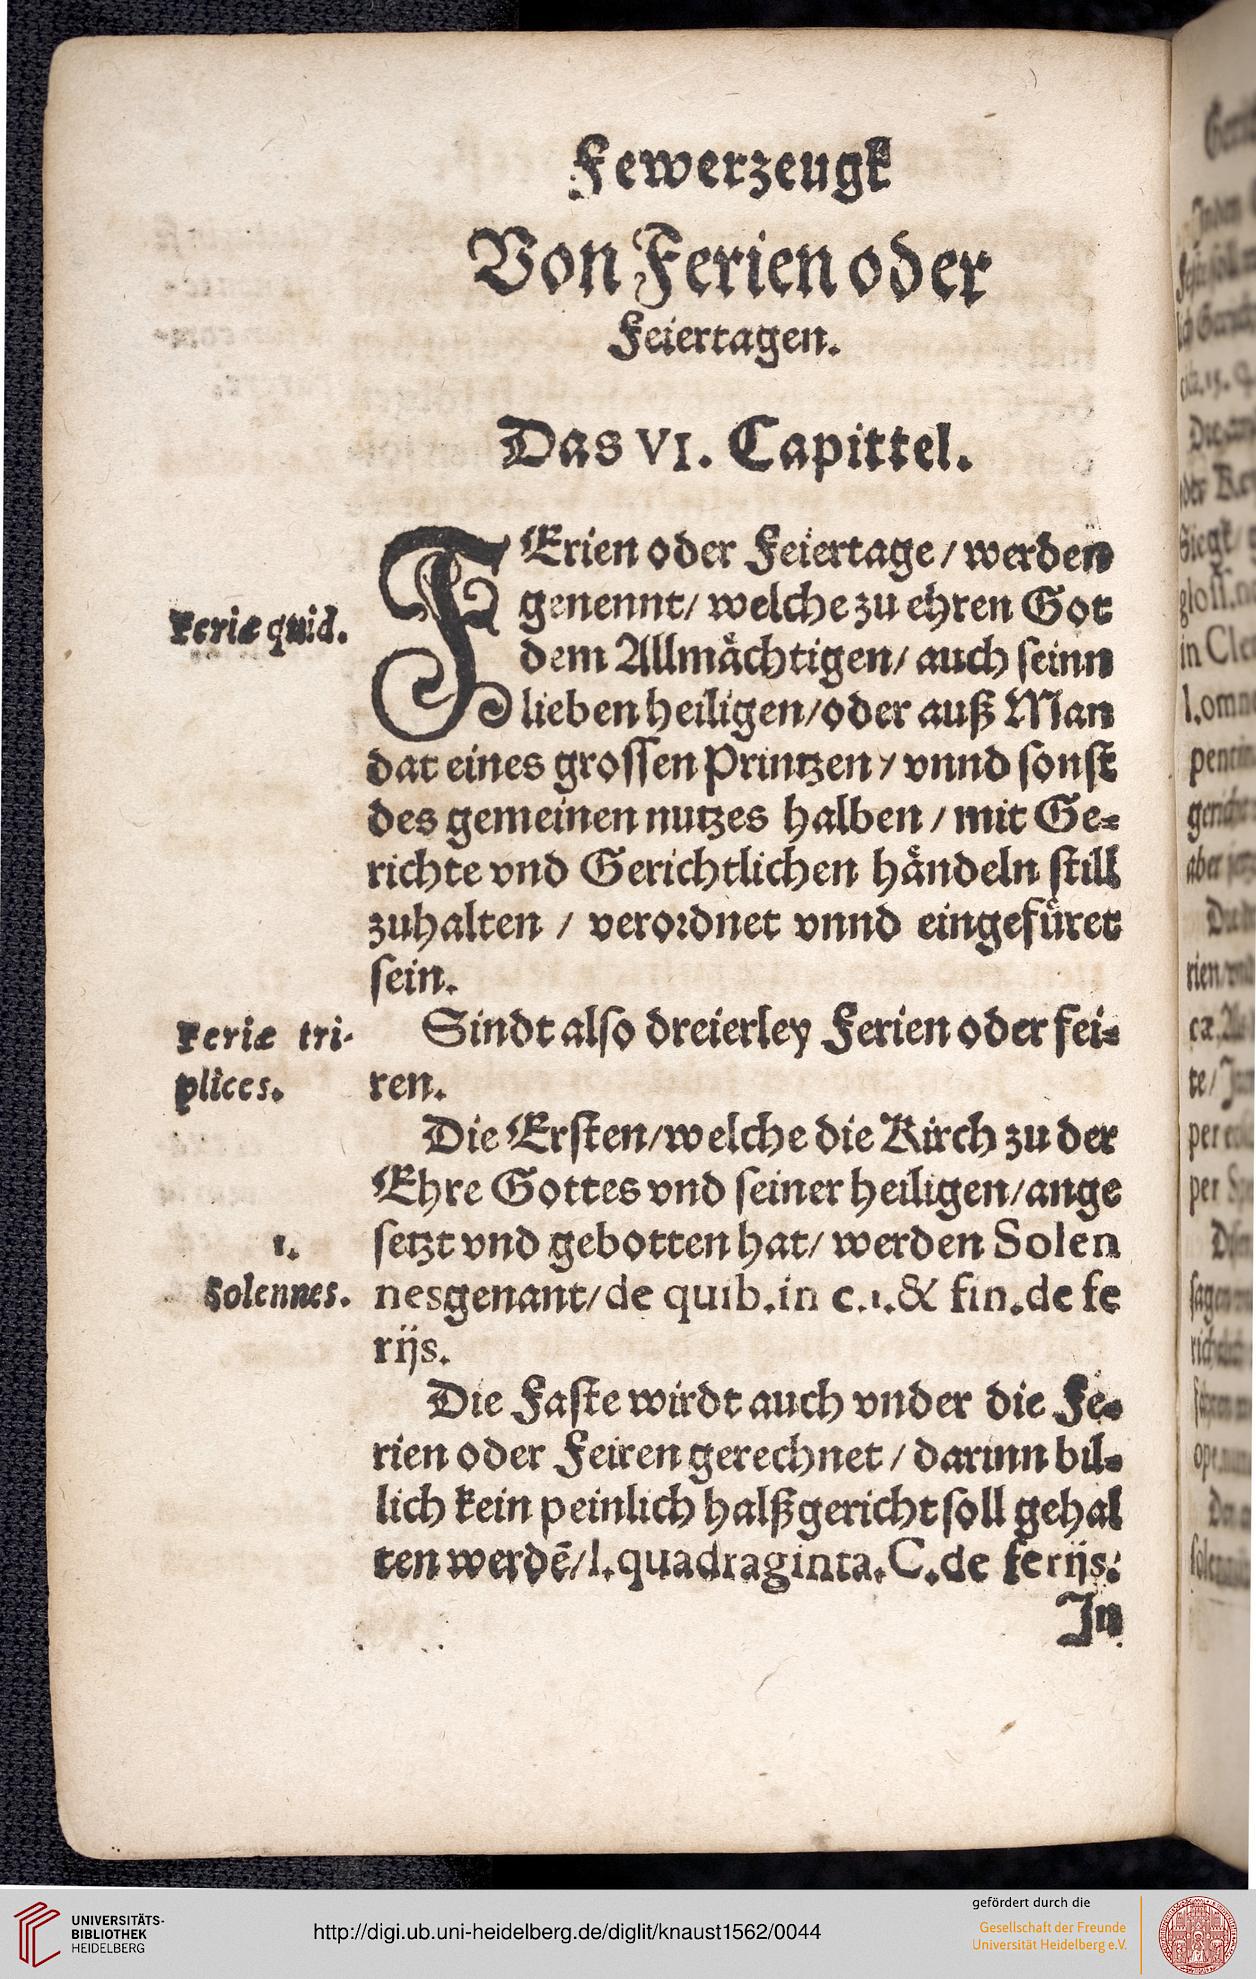 Fewerzeugk
Von Ferien oder
Feiertagen.
Das VI. Capittel.
Feriæ quid.
FErien oder Feiertage / werden
genennt / welche zu ehren Got
dem Allmächtigen / auch seinn
lieben heiligen / oder auß Man
dat eines grossen Printzen / vnnd sonst
des gemeinen nutzes halben / mit Ge-
richte vnd Gerichtlichen händeln still
zuhalten / verordnet vnnd eingefüret
sein.
Feriæ tri-
plices.
Sindt also dreierley Ferien oder fei-
ren.
Die Ersten / welche die Kirch zu der
Ehre Gottes vnd seiner heiligen / ange
1.
Solennes.
setzt vnd gebotten hat / werden Solen
nes genant / de quib. in c. 1. & fin. de fe
rijs.
Die Faste wirdt auch vnder die Fe-
rien oder Feiren gerechnet / darinn bil-
lich kein peinlich halßgericht soll gehal
ten werdē / l. quadraginta. C. de ferijs:
In
UNIVERSITÄTS-
BIBLIOTHEK
HEIDELBERG
http://digi.ub.uni-heidelberg.de/diglit/knaust1562/0044
gefördert durch die
Gesellschaft der Freunde
Universität Heidelberg e.V.